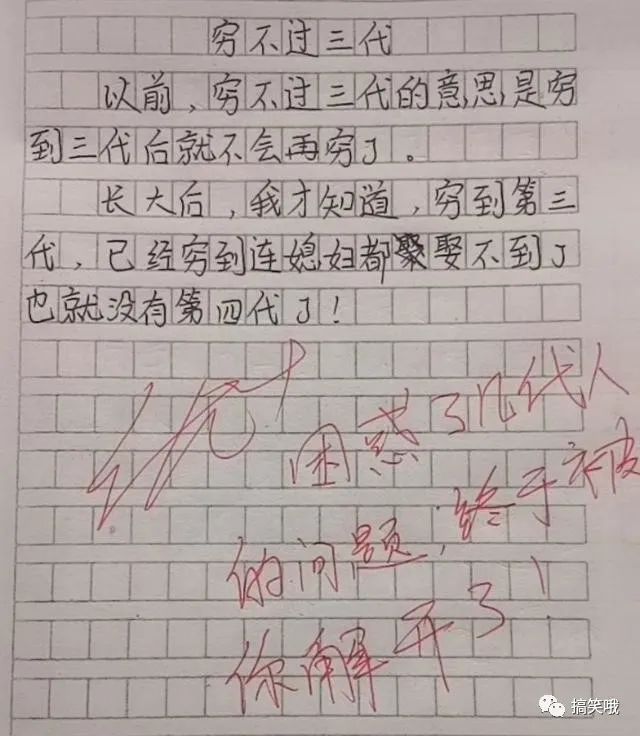 穷不过三代
以前,穷不过三代的意思,是穷
到三代后就不会再穷了。
长大后,我才知道,穷到第三
代,已经穷到连媳妇都娶不到了
也就没有第四代了!
优+
困惑了几代人
的问题,终于被
你解开了!
搞笑哦